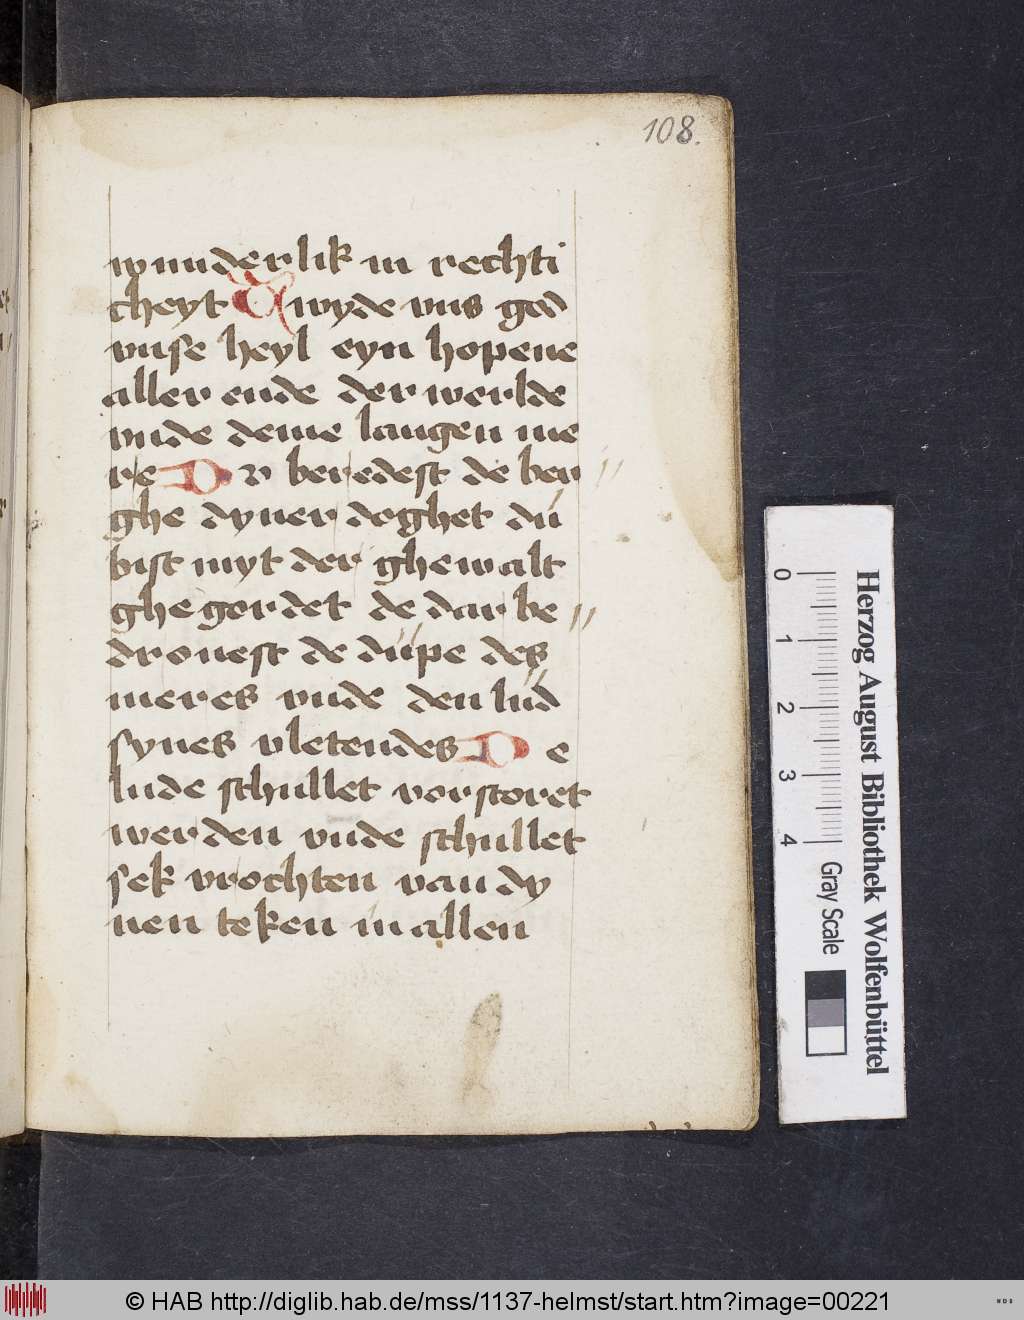 108.
wunderlik in rechti
cheyt Twyde vns god
vnse heyl eyn hopene
aller ende der werlde
vnde deme langen me
re Dv beredest de ber
ghe dyner deghet dů
bist myt der ghewalt
ghegordet de dar be
drouest de dupe des
meres vnde den lud
synes vletendes De
lude schullet vorstoret
werden vnde schullet
sek vrochten van dy
nen teken in allen
0 1 2 3 4
Gray Scale
Herzog August Bibliothek Wolfenbüttel
© HAB http://diglib.hab.de/mss/1137-helmst/start.htm?image=00221